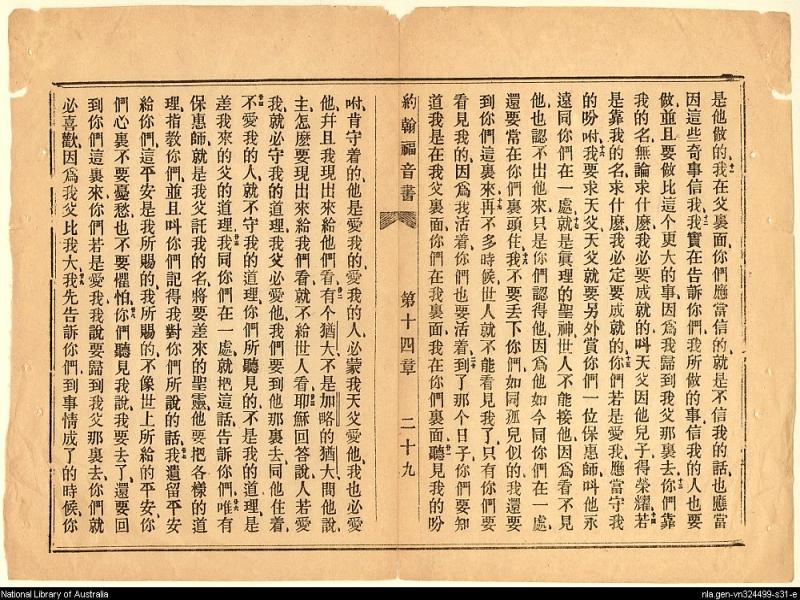 是他做的我在父裏面你們應當信的就是不信我的話也應當
因這些奇事信我我實在告訴你們我所做的事信我的人也要
做並且要做比這个更大的事因爲我歸到我父那裏去你們靠
我的名無論求什麽我必要成就的呌天父因他兒子得榮耀若
是靠我的名求什麽我必定要成就的你們若是愛我應當守我
的吩咐我要求天父天父就要另外賞你們一位保惠師呌他永
遠同你們在一處就是眞理的聖神世人不能接他因爲看不見
他也認不出他來只是你們認得他因爲他如今同你們在一處
還要常在你們裏頭住我不要丢下你們如同孤兒似的我還要
到你們這裏來再不多時候世人就不能看見我了只有你們要
看見我的因爲我活着你們也要活着到了那个日子你們要知
道我是在我父裏面你們在我裏面我在你們裏面聽見我的吩
約翰福音書 第十四章 二十九
咐肯守着的他是愛我的愛我的人必蒙我天父愛他我也必愛
他幷且我現出來給他們看有个猶大不是加略的猶大問他說
主怎麽要現出來給我們看就不給世人看耶穌回答說人若愛
我就必守我的道理我父必愛他我們要到他那裏去同他住着
不愛我的人就不守我的道理你們所聽見的不是我的道理是
差我來的父的道理我同你們在一處就把這話告訴你們唯有
保惠師就是我父託我的名將要差來的聖靈他要把各樣的道
理指敎你們並且呌你們記得我對你們所說的話我遺留平安
給你們這平安是我所賜的我所賜的不像世上所給的平安你
們心裏不要憂愁也不要懼怕你們聽見我說我要去了還要回
到你們這裏來你們若是愛我我說要歸到我父那裏去你們就
必喜歡因爲我父比我大我先告訴你們到事情成了的時候你
National Library of Australia
nla.gen-vn324499-s31-e